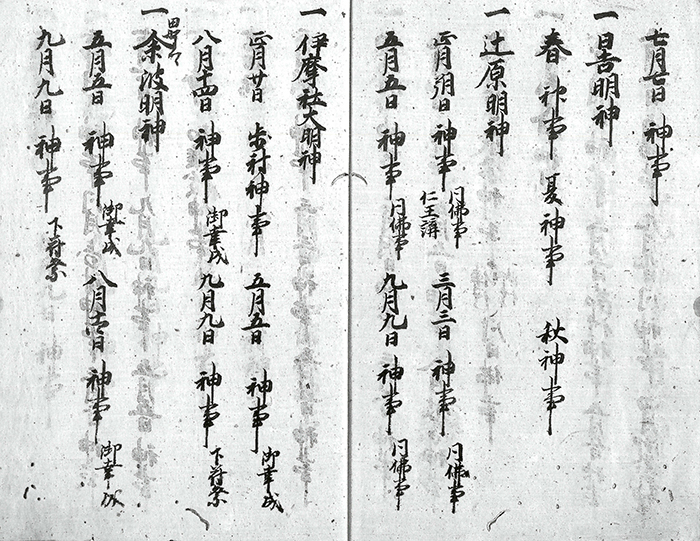 七月七日 神事
一 日吉明神
春神事 夏神事 秋神事
一 辻原明神
正月朔日 神事 同佛事 仁王講 三月三日 神事 同佛事
五月五日 神事 同佛事 九月九日 神事 同佛事
一 伊摩社大明神
正月廿日 歩射神事 五月五日 神事 御幸成
八月十四日 神事 御幸成 九月九日 神事
一 余波明神
五月五日 神事 御幸成 八月 日 神事 御幸成
九月九日 神事